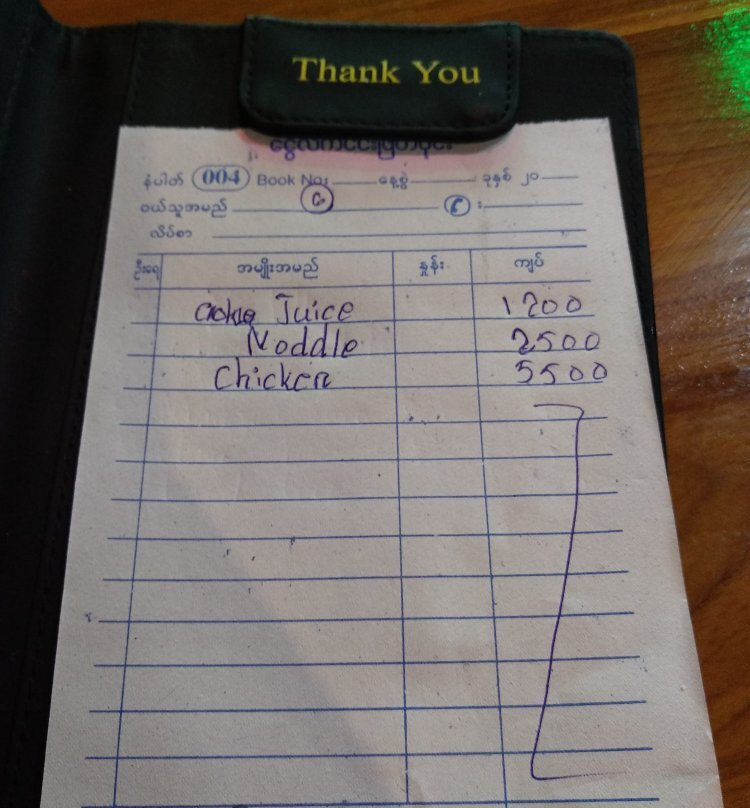 Thank You
ငွေလက်ငင်းဖြတ်ပိုင်း
နံပါတ် 004 Book No: နေ့စွဲ ခုနှစ် ၂၀
ဝယ်သူအမည်
လိပ်စာ
ဦးရေ အမျိုးအမည် နှုန်း ကျပ်
Juice 1700
Noddle 2500
Chicken 5500